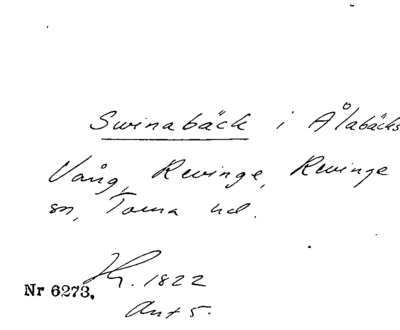 Swinabäck i Ålabäcks
Vång, Revinge, Revinge
sn, Torna hd.
1822
Nr 6273.
Akt 5.